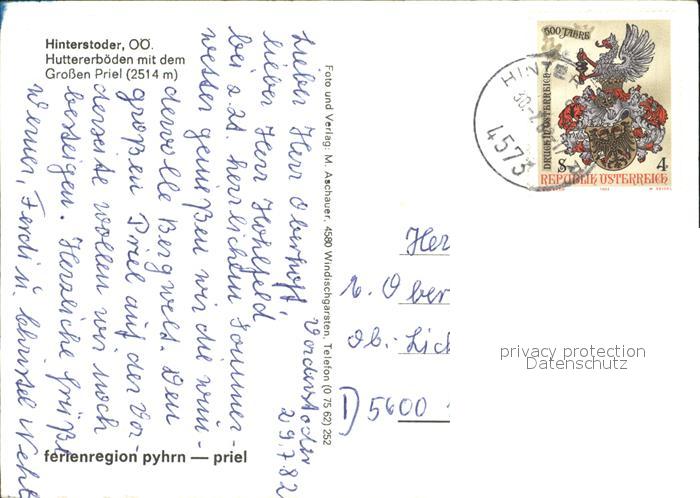 Hinterstoder, OÖ.
Huttererböden mit dem
Großen Priel (2514 m)
Vorderstoder
29.7.82
Lieber Herr Oberhoff,
lieber Herr Hohlfeld
bei z.Zt. herrlichem Sommer-
wetter genießen wir die wun-
dervolle Bergwelt. Den
großen Priel auf der Vor-
derseite wollen wir noch
besteigen. Herzliche Grüße
Werner, Ferdi u. Christel
ferienregion pyhrn — priel
Foto und Verlag: M. Aschauer, 4580 Windischgarsten, Telefon (0 75 62) 252
500 JAHRE
DRUCK IN ÖSTERREICH
S 4
REPUBLIK ÖSTERREICH
HINTER
4573
Her
E. Ober
Ob. Lich
D) 5600
privacy protection
Datenschutz